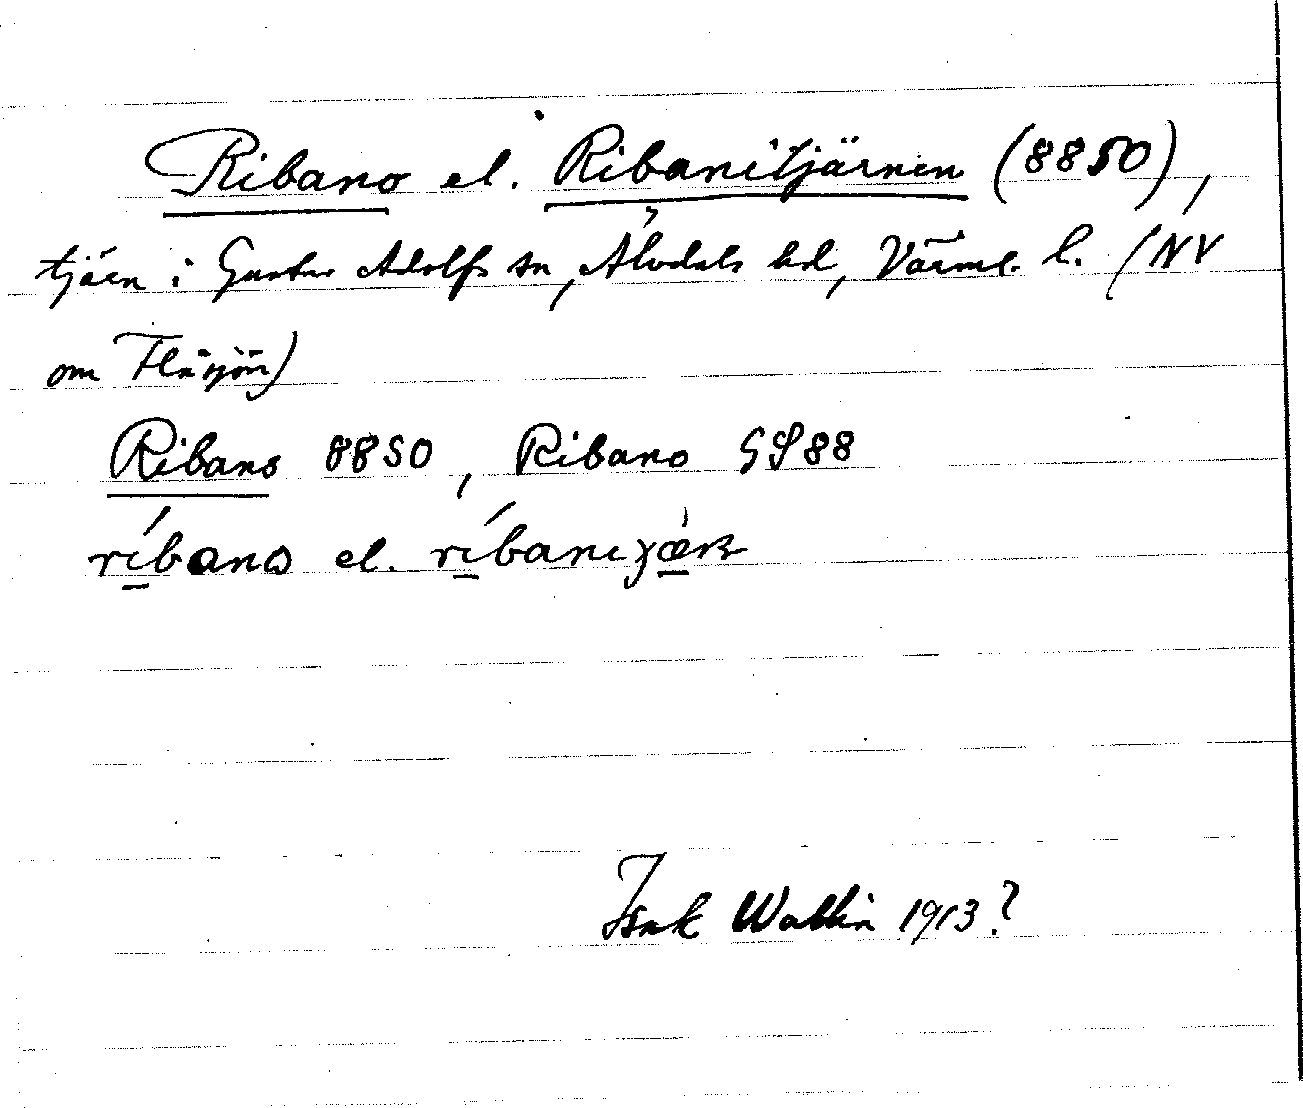 Ribano el. Ribanitjärnen (8850),
tjärn i Gustav Adolfs sn, Älvdals hd, Värml. l. (NV
om Flåsjön)
Ribano 8850, Ribano GS88
ríbano el. ríbani
Isak Wallin 1913?